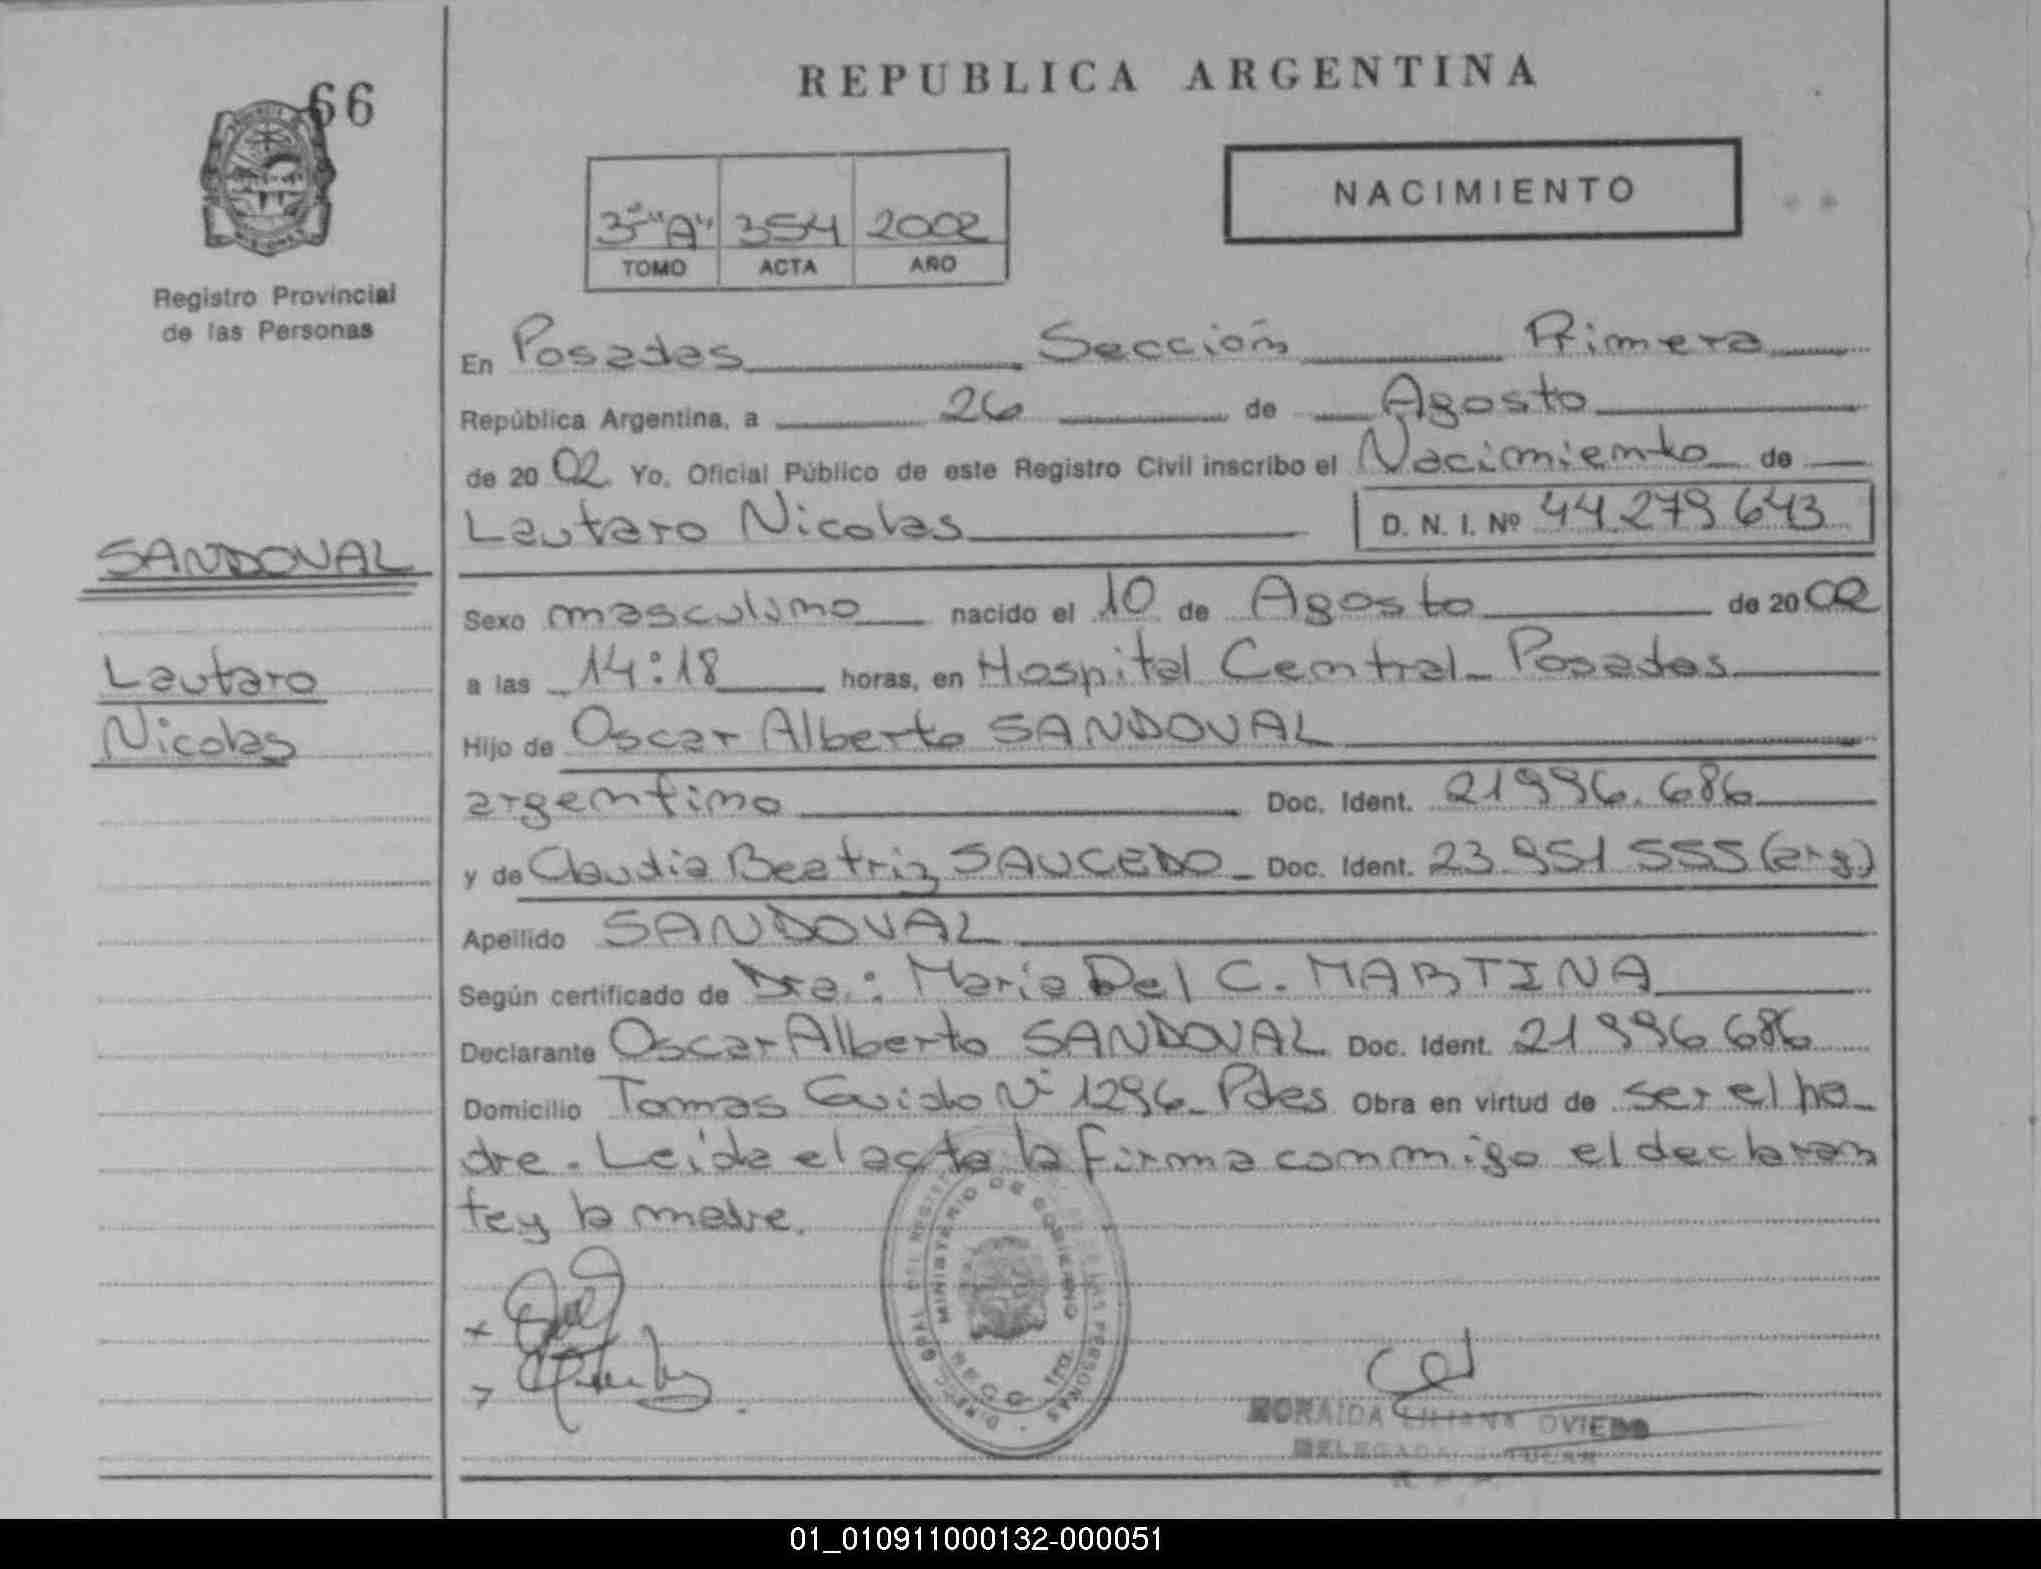 66
Registro Provincial
de las Personas
SANDOVAL
Lautaro
Nicolas
REPUBLICA ARGENTINA
NACIMIENTO
3º"A" 354 2002
TOMO ACTA AÑO
En Posadas Sección Primera
República Argentina, a 26 de Agosto
de 2002 Yo, Oficial Público de este Registro Civil inscribo el Nacimiento de
Lautaro Nicolas D. N. I. Nº 44 279 643
Sexo masculino nacido el 10 de Agosto de 2002
a las 14:18 horas, en Hospital Central - Posadas
Hijo de Oscar Alberto SANDOVAL
argentino Doc. Ident. 21996.686
y de Claudia Beatriz SAUCEDO - Doc. Ident. 23.951 555 (arg.)
Apellido SANDOVAL
Según certificado de Dra.: Maria Del C. MARTINA
Declarante Oscar Alberto SANDOVAL Doc. Ident. 21 996 686
Domicilio Tomas Guido Nº 1296 - Pdas Obra en virtud de ser el pa-
dre. Leida el acta la firma conmigo el declaran
te y la madre.
MINISTERIO DE GOBIERNO
LILIANA OVIEDO
01_010911000132-000051